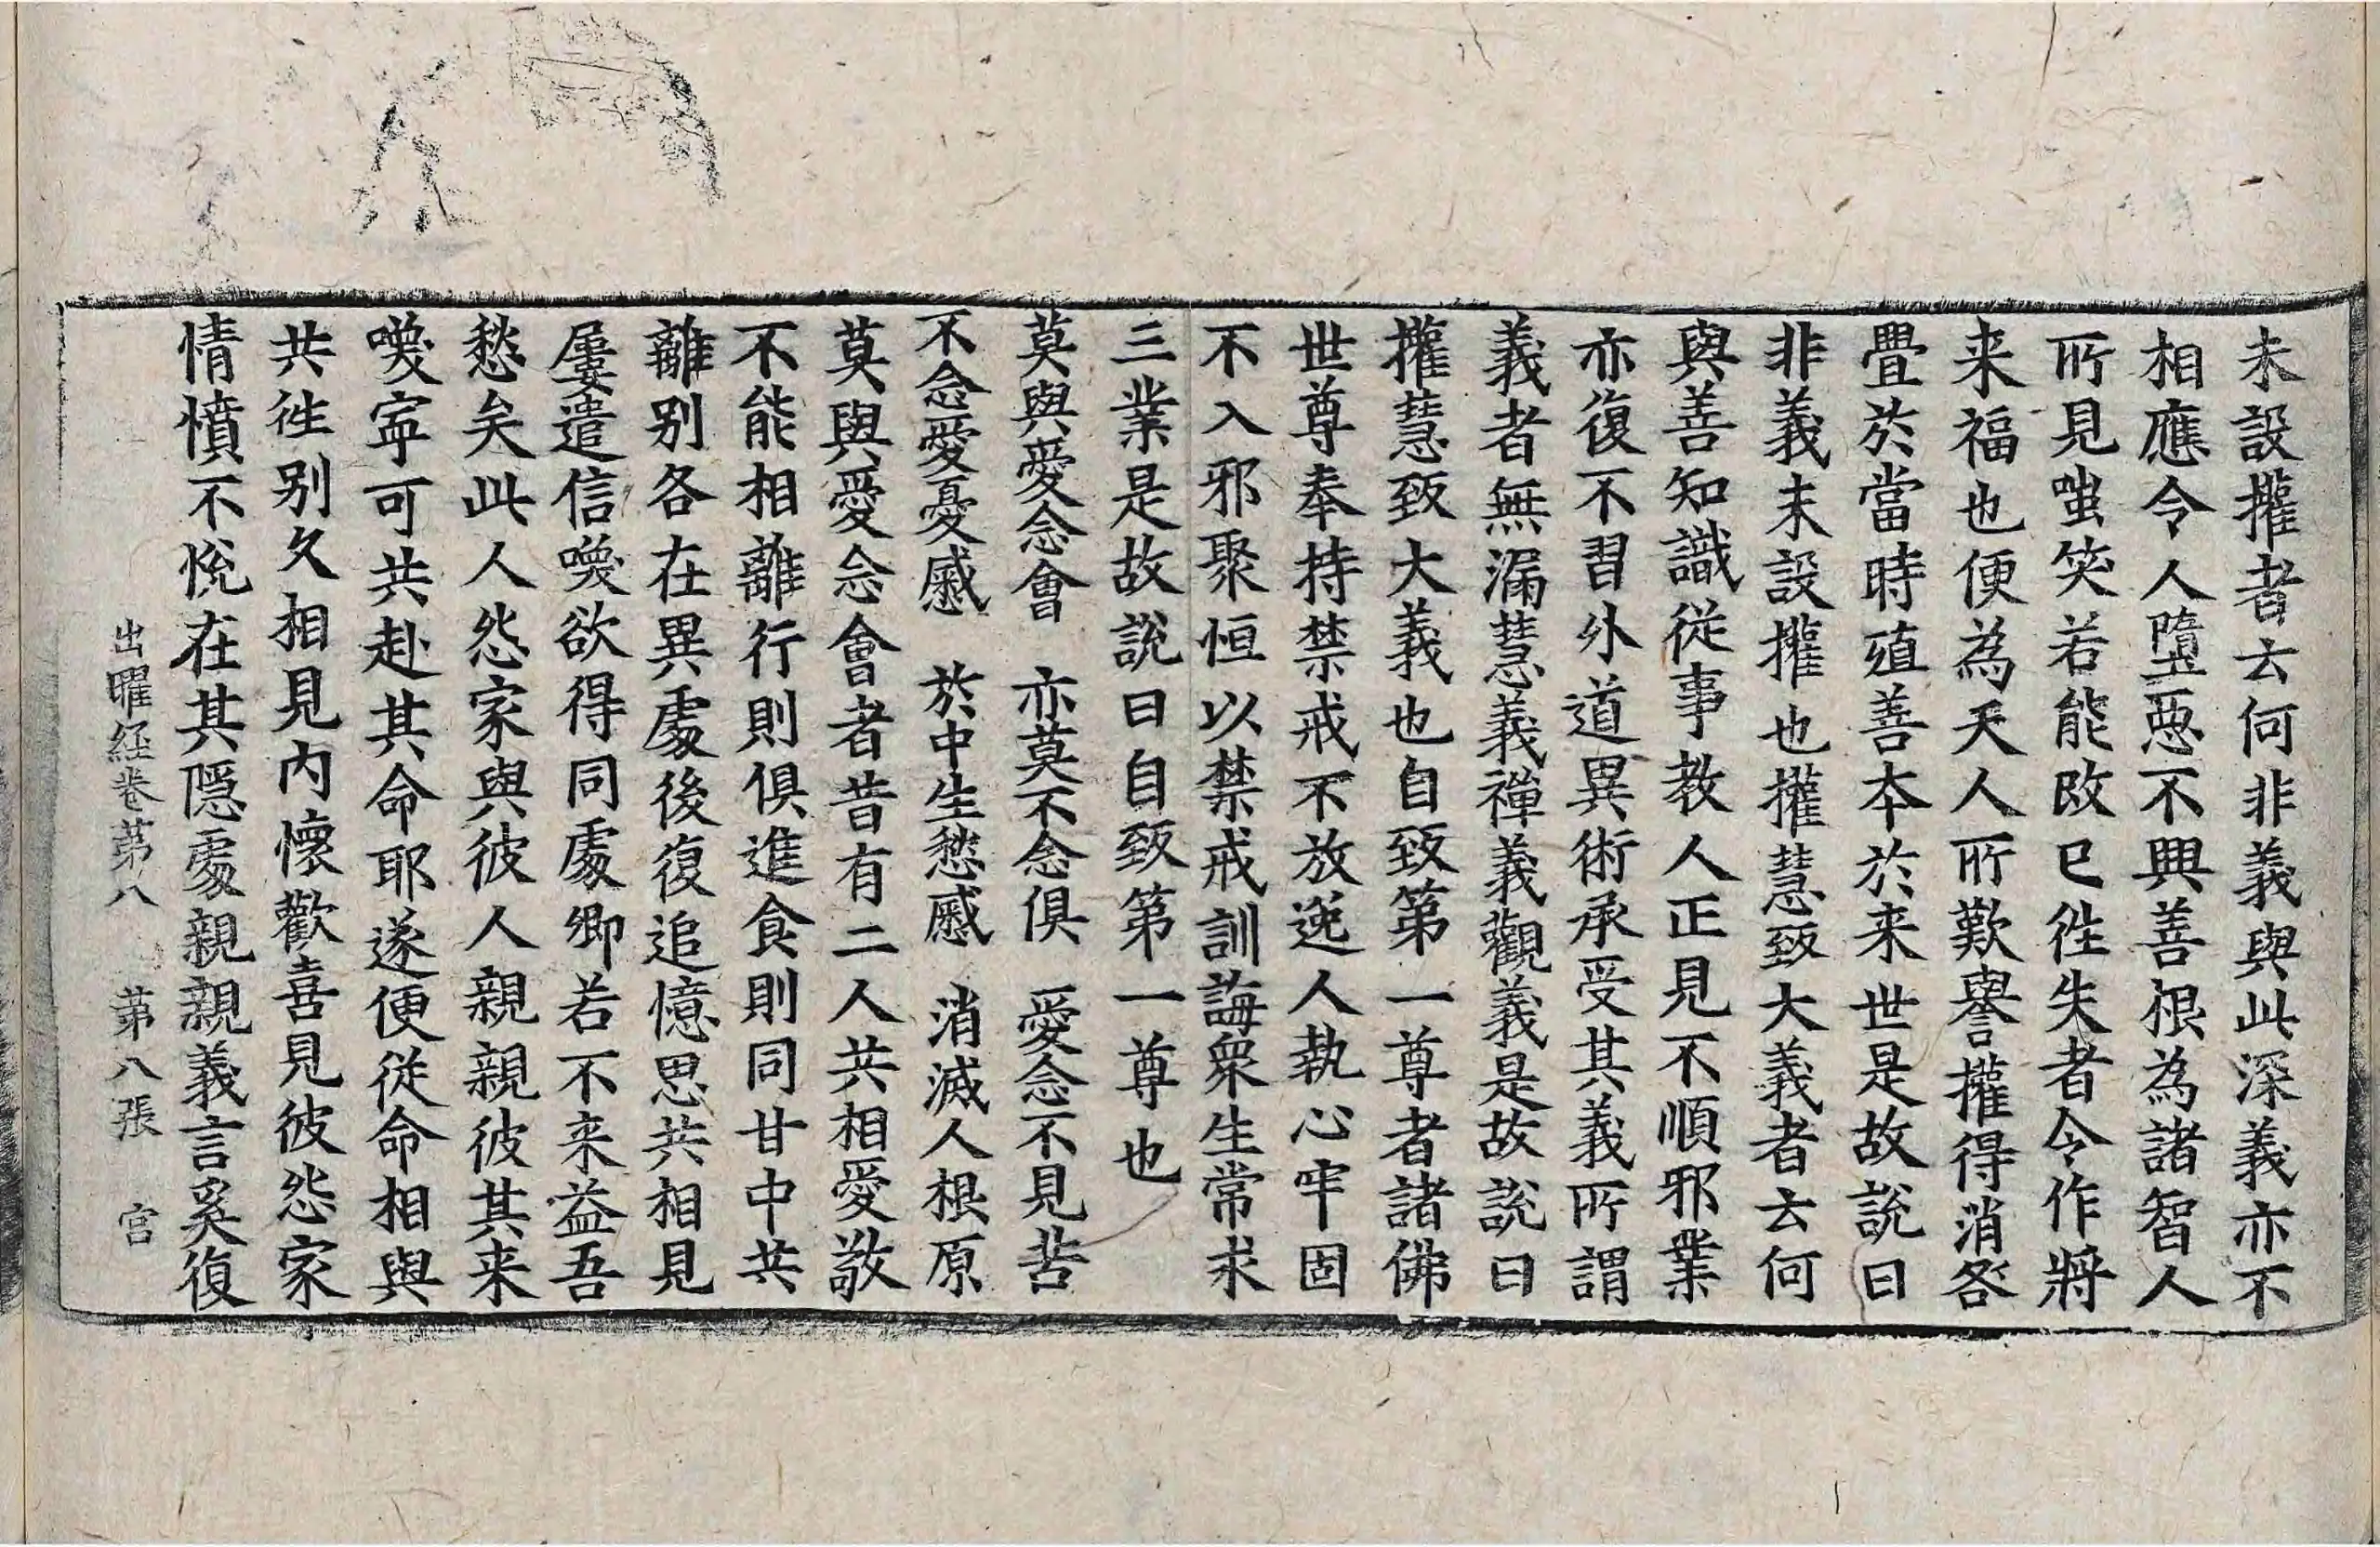 未設攉者去何非義與此深義亦不
相應令人墮惡不興善根為諸智人
所見嗤笑若能改已往失者今作將
来福也便為天人所歎譽攉得消咎
疊於當時殖善本於来世是故說曰
非義未設攉也攉慧致大義者去何
與善知識從事教人正見不順邪業
亦復不習外道異術承受其義所謂
義者無漏慧義禪義觀義是故說曰
攉慧致大義也自致第一尊者諸佛
世尊奉持禁戒不放逸人執心牢固
不入邪聚恒以禁戒訓誨衆生常求
三業是故說曰自致第一尊也
莫與愛念會　亦莫不念俱　愛念不見苦
不念愛憂慼　於中生愁慼　消滅人根原
莫與愛念會者昔有二人共相愛敬
不能相離行則俱進食則同甘中共
離别各在異處後復追憶思共相見
屢遣信喚欲得同處卿若不来益吾
愁矣此人怨家與彼人親親彼其来
喚寧可共赴其命耶遂便從命相與
共往别久相見内懷歡喜見彼怨家
情憤不悅在其隱處親親義言奚復
出曜経卷苐八　苐八張　宫